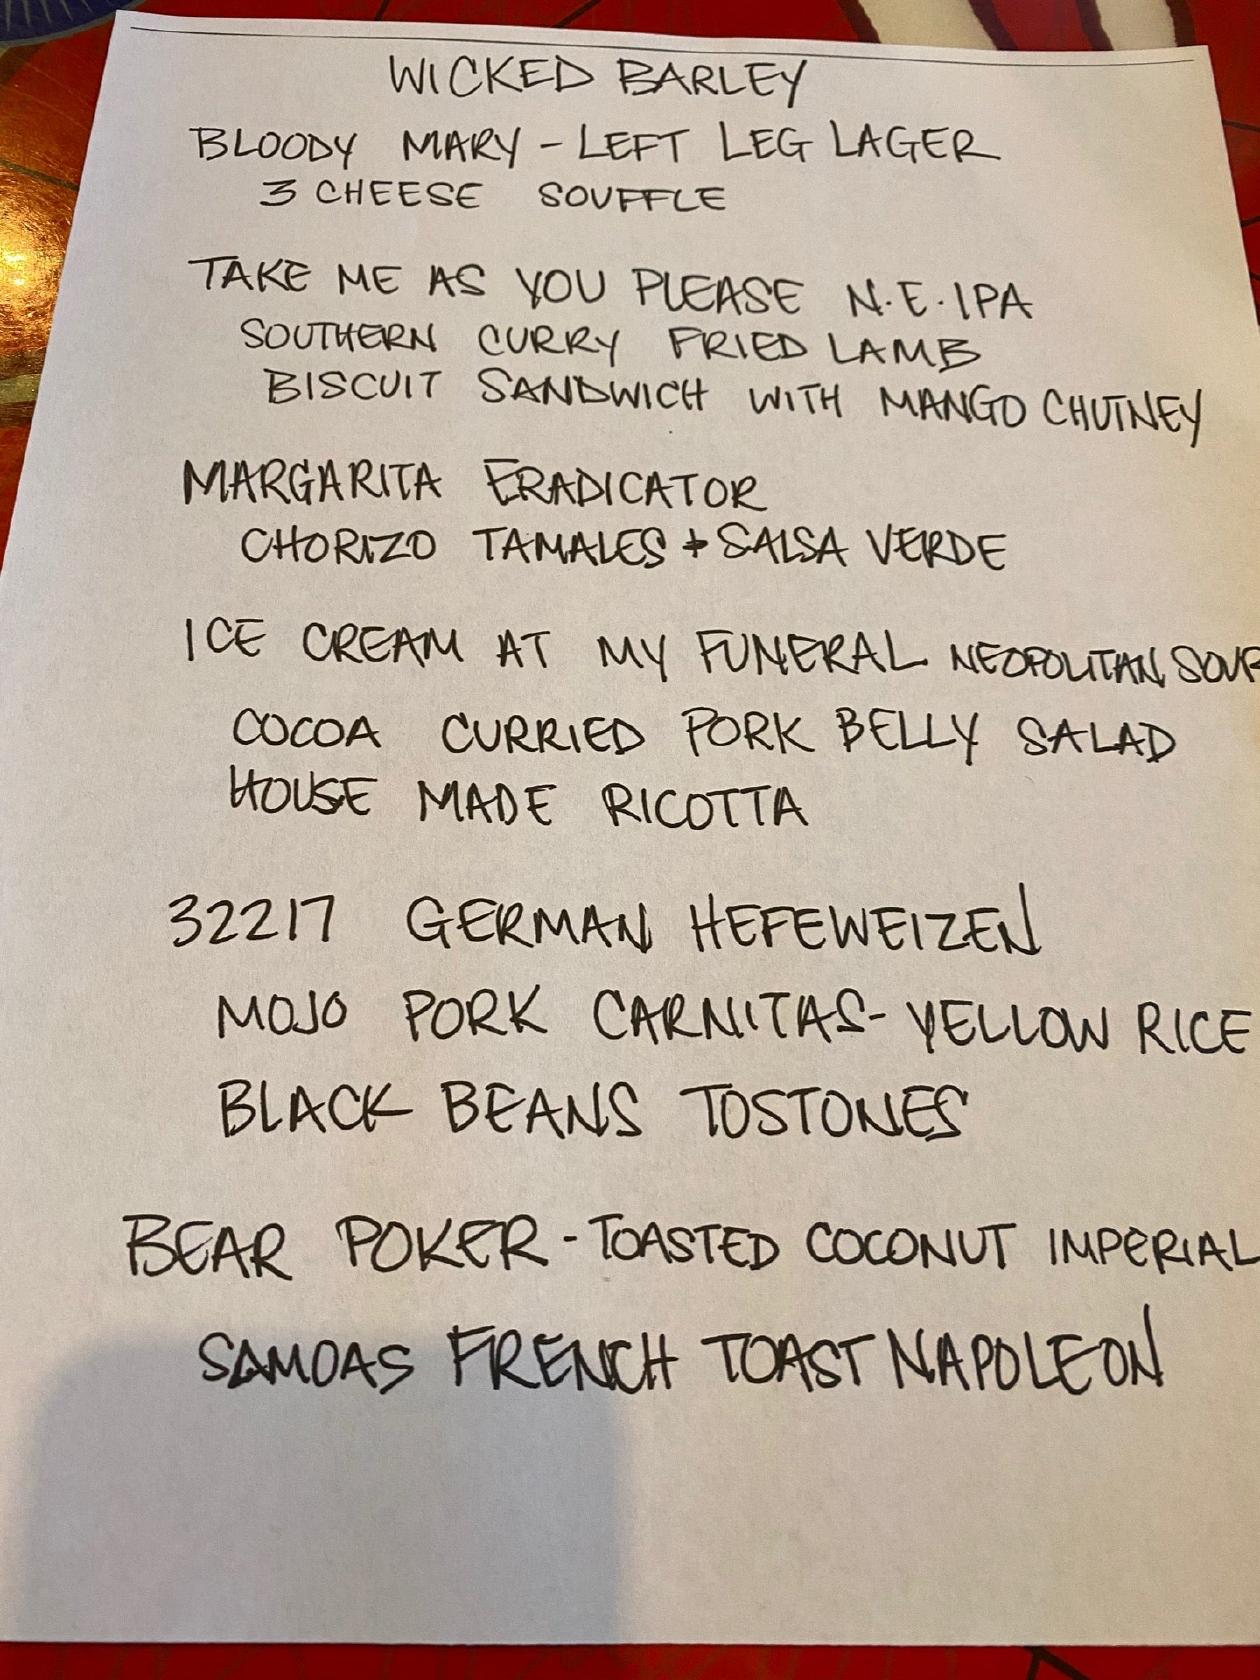 WICKED BARLEY
BLOODY MARY - LEFT LEG LAGER
3 CHEESE SOUFFLE
TAKE ME AS YOU PLEASE N.E. IPA
SOUTHERN CURRY FRIED LAMB
BISCUIT SANDWICH WITH MANGO CHUTNEY
MARGARITA ERADICATOR
CHORIZO TAMALES + SALSA VERDE
ICE CREAM AT MY FUNERAL NEOPOLITAN SOUR
COCOA CURRIED PORK BELLY SALAD
HOUSE MADE RICOTTA
32217 GERMAN HEFEWEIZEN
MOJO PORK CARNITAS - YELLOW RICE
BLACK BEANS TOSTONES
BEAR POKER - TOASTED COCONUT IMPERIAL
SAMOAS FRENCH TOAST NAPOLEON